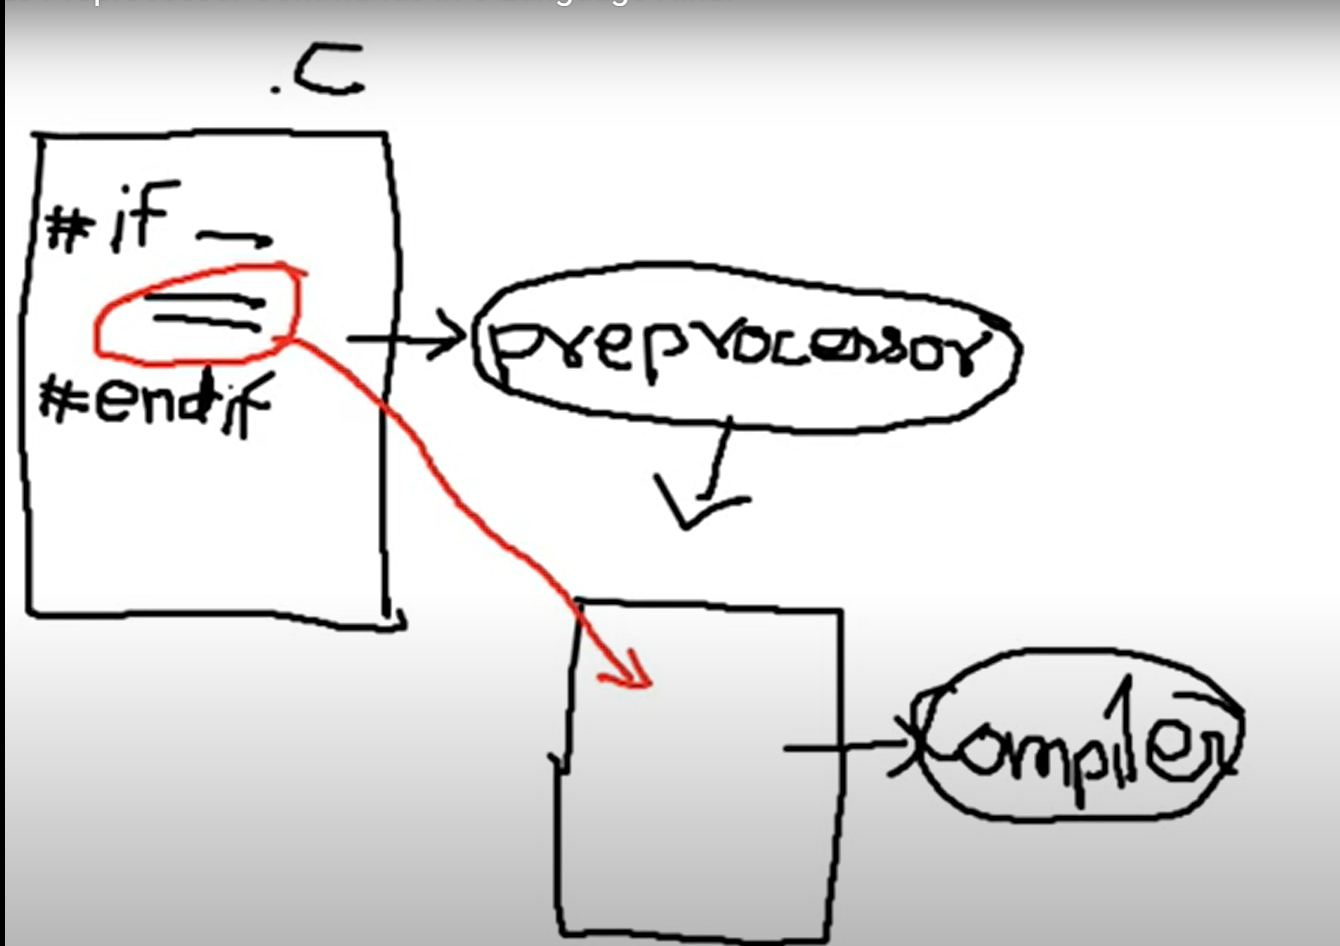 .C
#if
#endif
preprocessor
Compiler